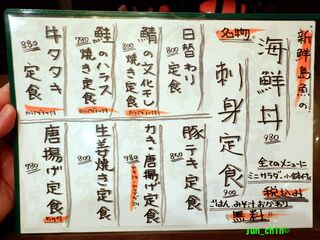 新鮮島魚の
名物
海鮮丼
980
刺身定食
900
全てのメニューに
ミニサラダ、小鉢付き
税込み
ごはん、みそ汁おかわり
無料
日替わり定食
700
鯖の文化干し焼き定食
800
鮭のハラス焼き定食
700
牛タタキ定食
880
豚テキ定食
850
かき・唐揚げ定食
980
生姜焼き定食
780
唐揚げ定食
730
jun_chin©